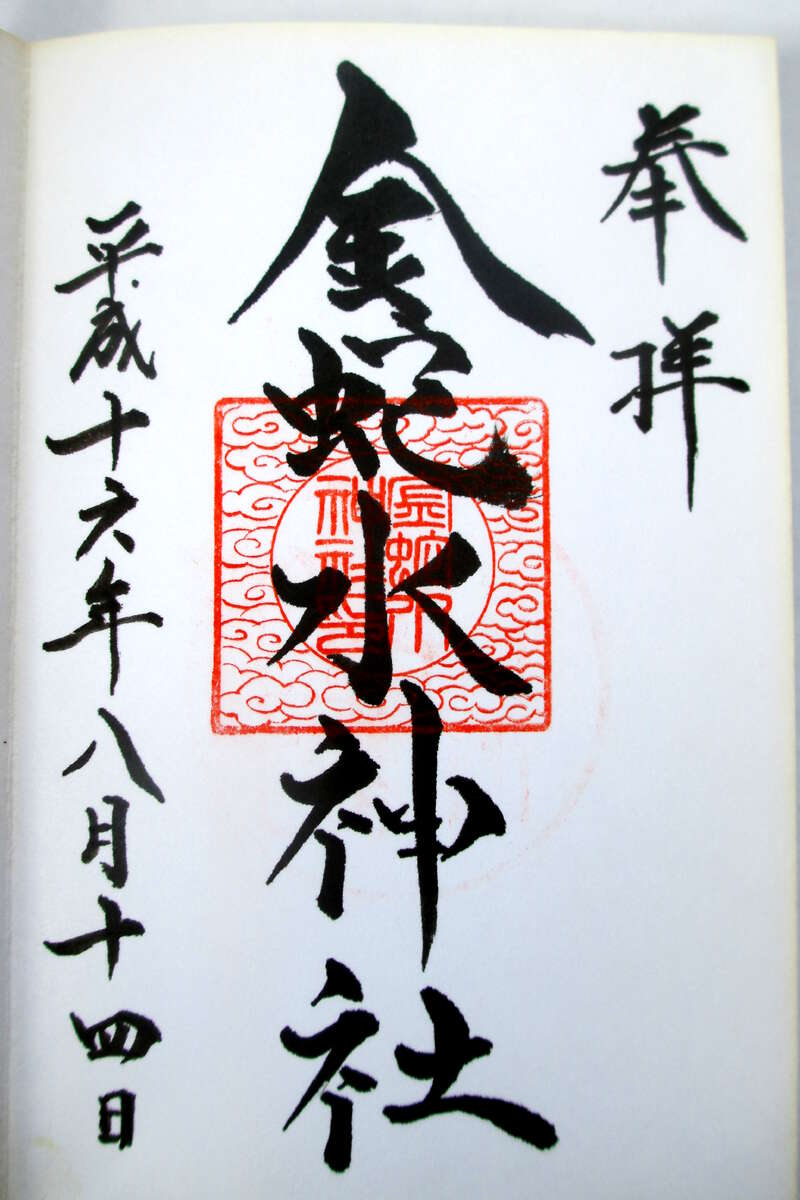 奉拝
金蛇水神社
平成十六年八月十四日